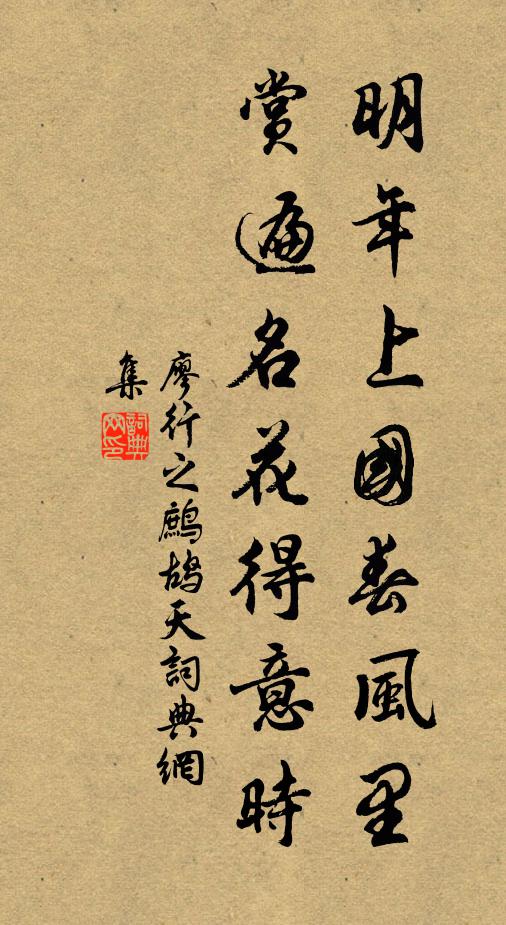 明年上國春風里
賞遍名花得意時
廖行之鷓鴣天詞典網
集
詞典網印